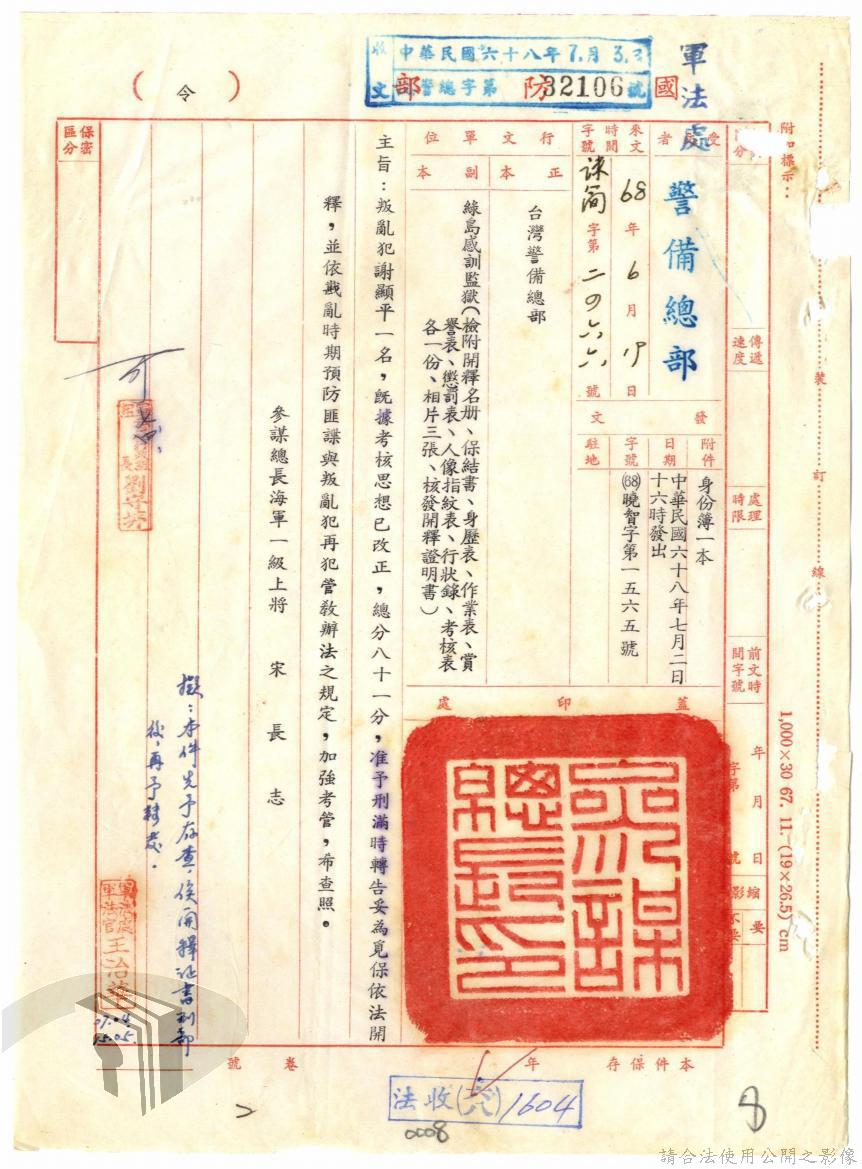 軍法處
國防部
(令)
中華民國六十八年7.月3.
警總字第32106號
收文
附加標示：
裝訂線
1,000×30 67. 11. (19×26.5) cm
傳遞速度
處理時限
前文時間字號
年月日
字第號
縮影
要
不要
受文者
警備總部
來文時間字號
68年6月
字第二四六六號
發文
附件
身份簿一本
日期
中華民國六十八年七月二日
十六時發出
字號
(68)曉智字第一五六五號
駐地
蓋印處
參謀總長印
行文單位
正本
台灣警備總部
副本
綠島感訓監獄（檢附開釋名册、保結書、身歷表、作業表、賞
譽表、懲罰表、人像指紋表、行狀錄、考核表
各一份、相片三張、核發開釋證明書）
主旨：叛亂犯謝顯平一名，既據考核思想已改正，總分八十一分，准予刑滿時轉告妥為覓保依法開
釋，並依戡亂時期預防匪諜與叛亂犯再犯管教辦法之規定，加強考管，希查照。
參謀總長海軍一級上將 宋長志
保密區分
可
擬：本件先予存查，俟開釋證書到部
後，再予轉發。
軍法官王治華
07.04.
15.05.
本件保存年
卷號
法收(六八)1604
0008
8
請合法使用公開之影像